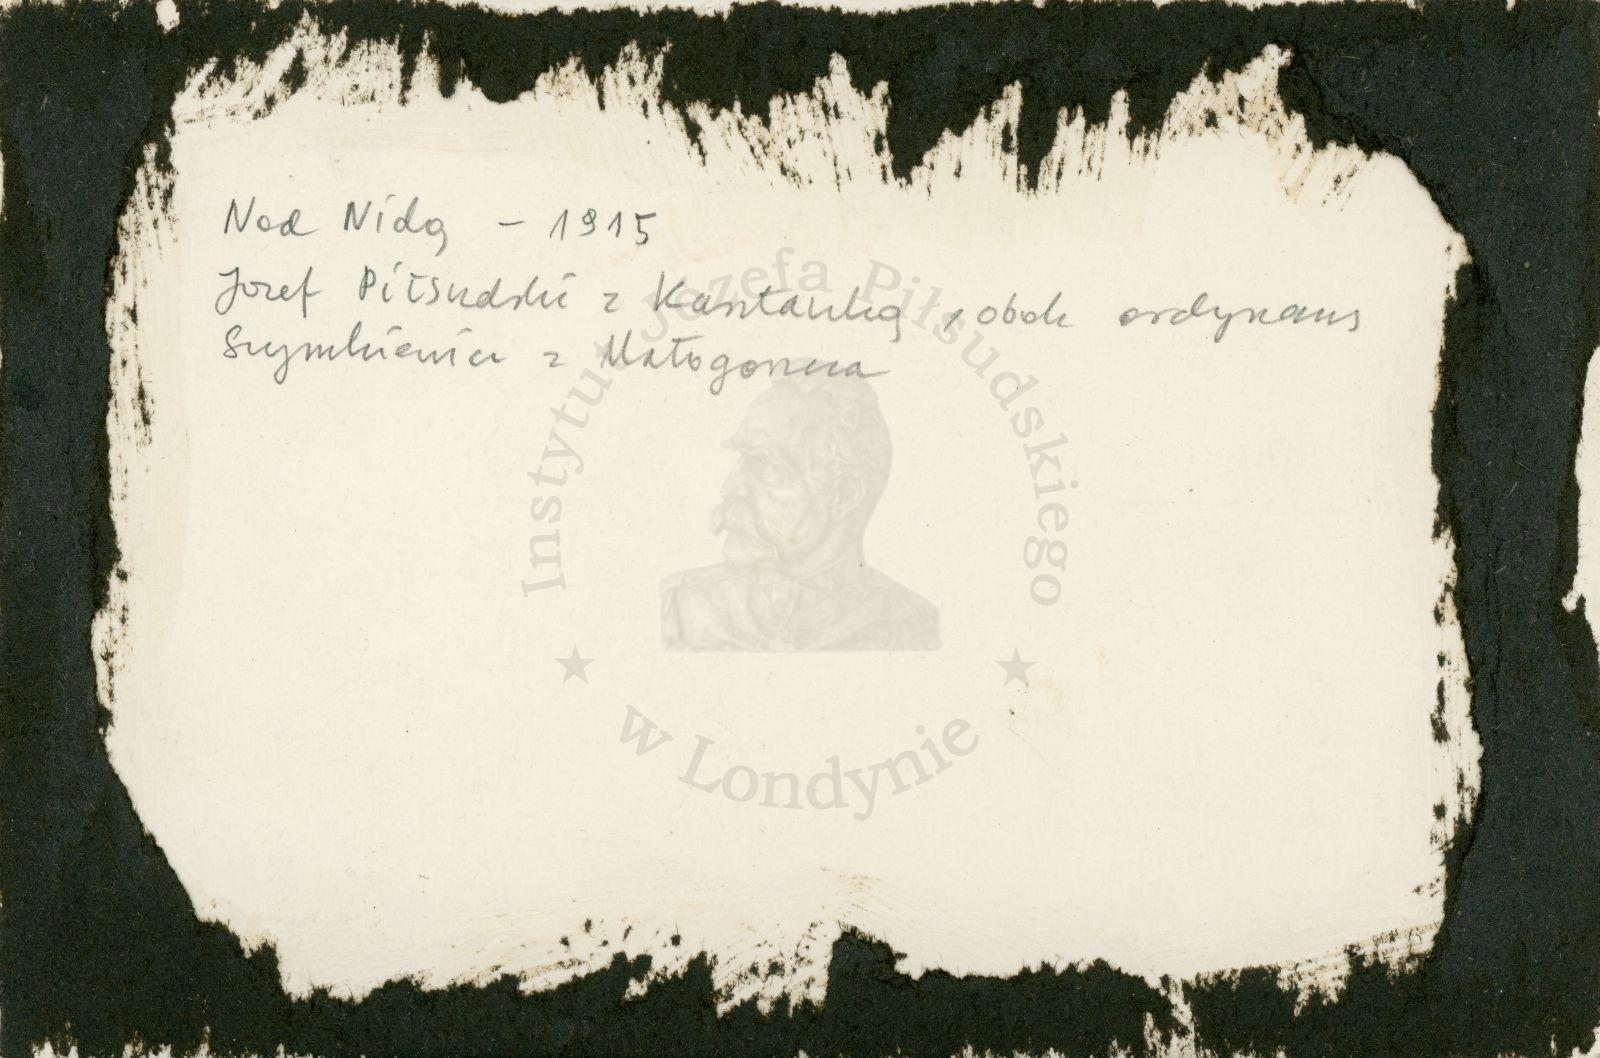 Nad Nidą - 1915
Józef Piłsudski z Kasztanką, obok ordynans
Szymkiewicz z Małogoszcza
Instytut Józefa Piłsudskiego
w Londynie